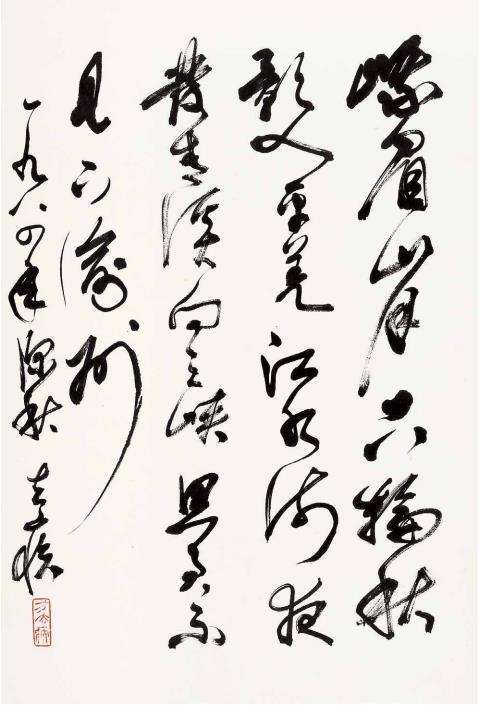 峨眉山月半輪秋
影入平羌江水流夜
發清溪向三峡思君不
見下渝州
一九八四年深秋